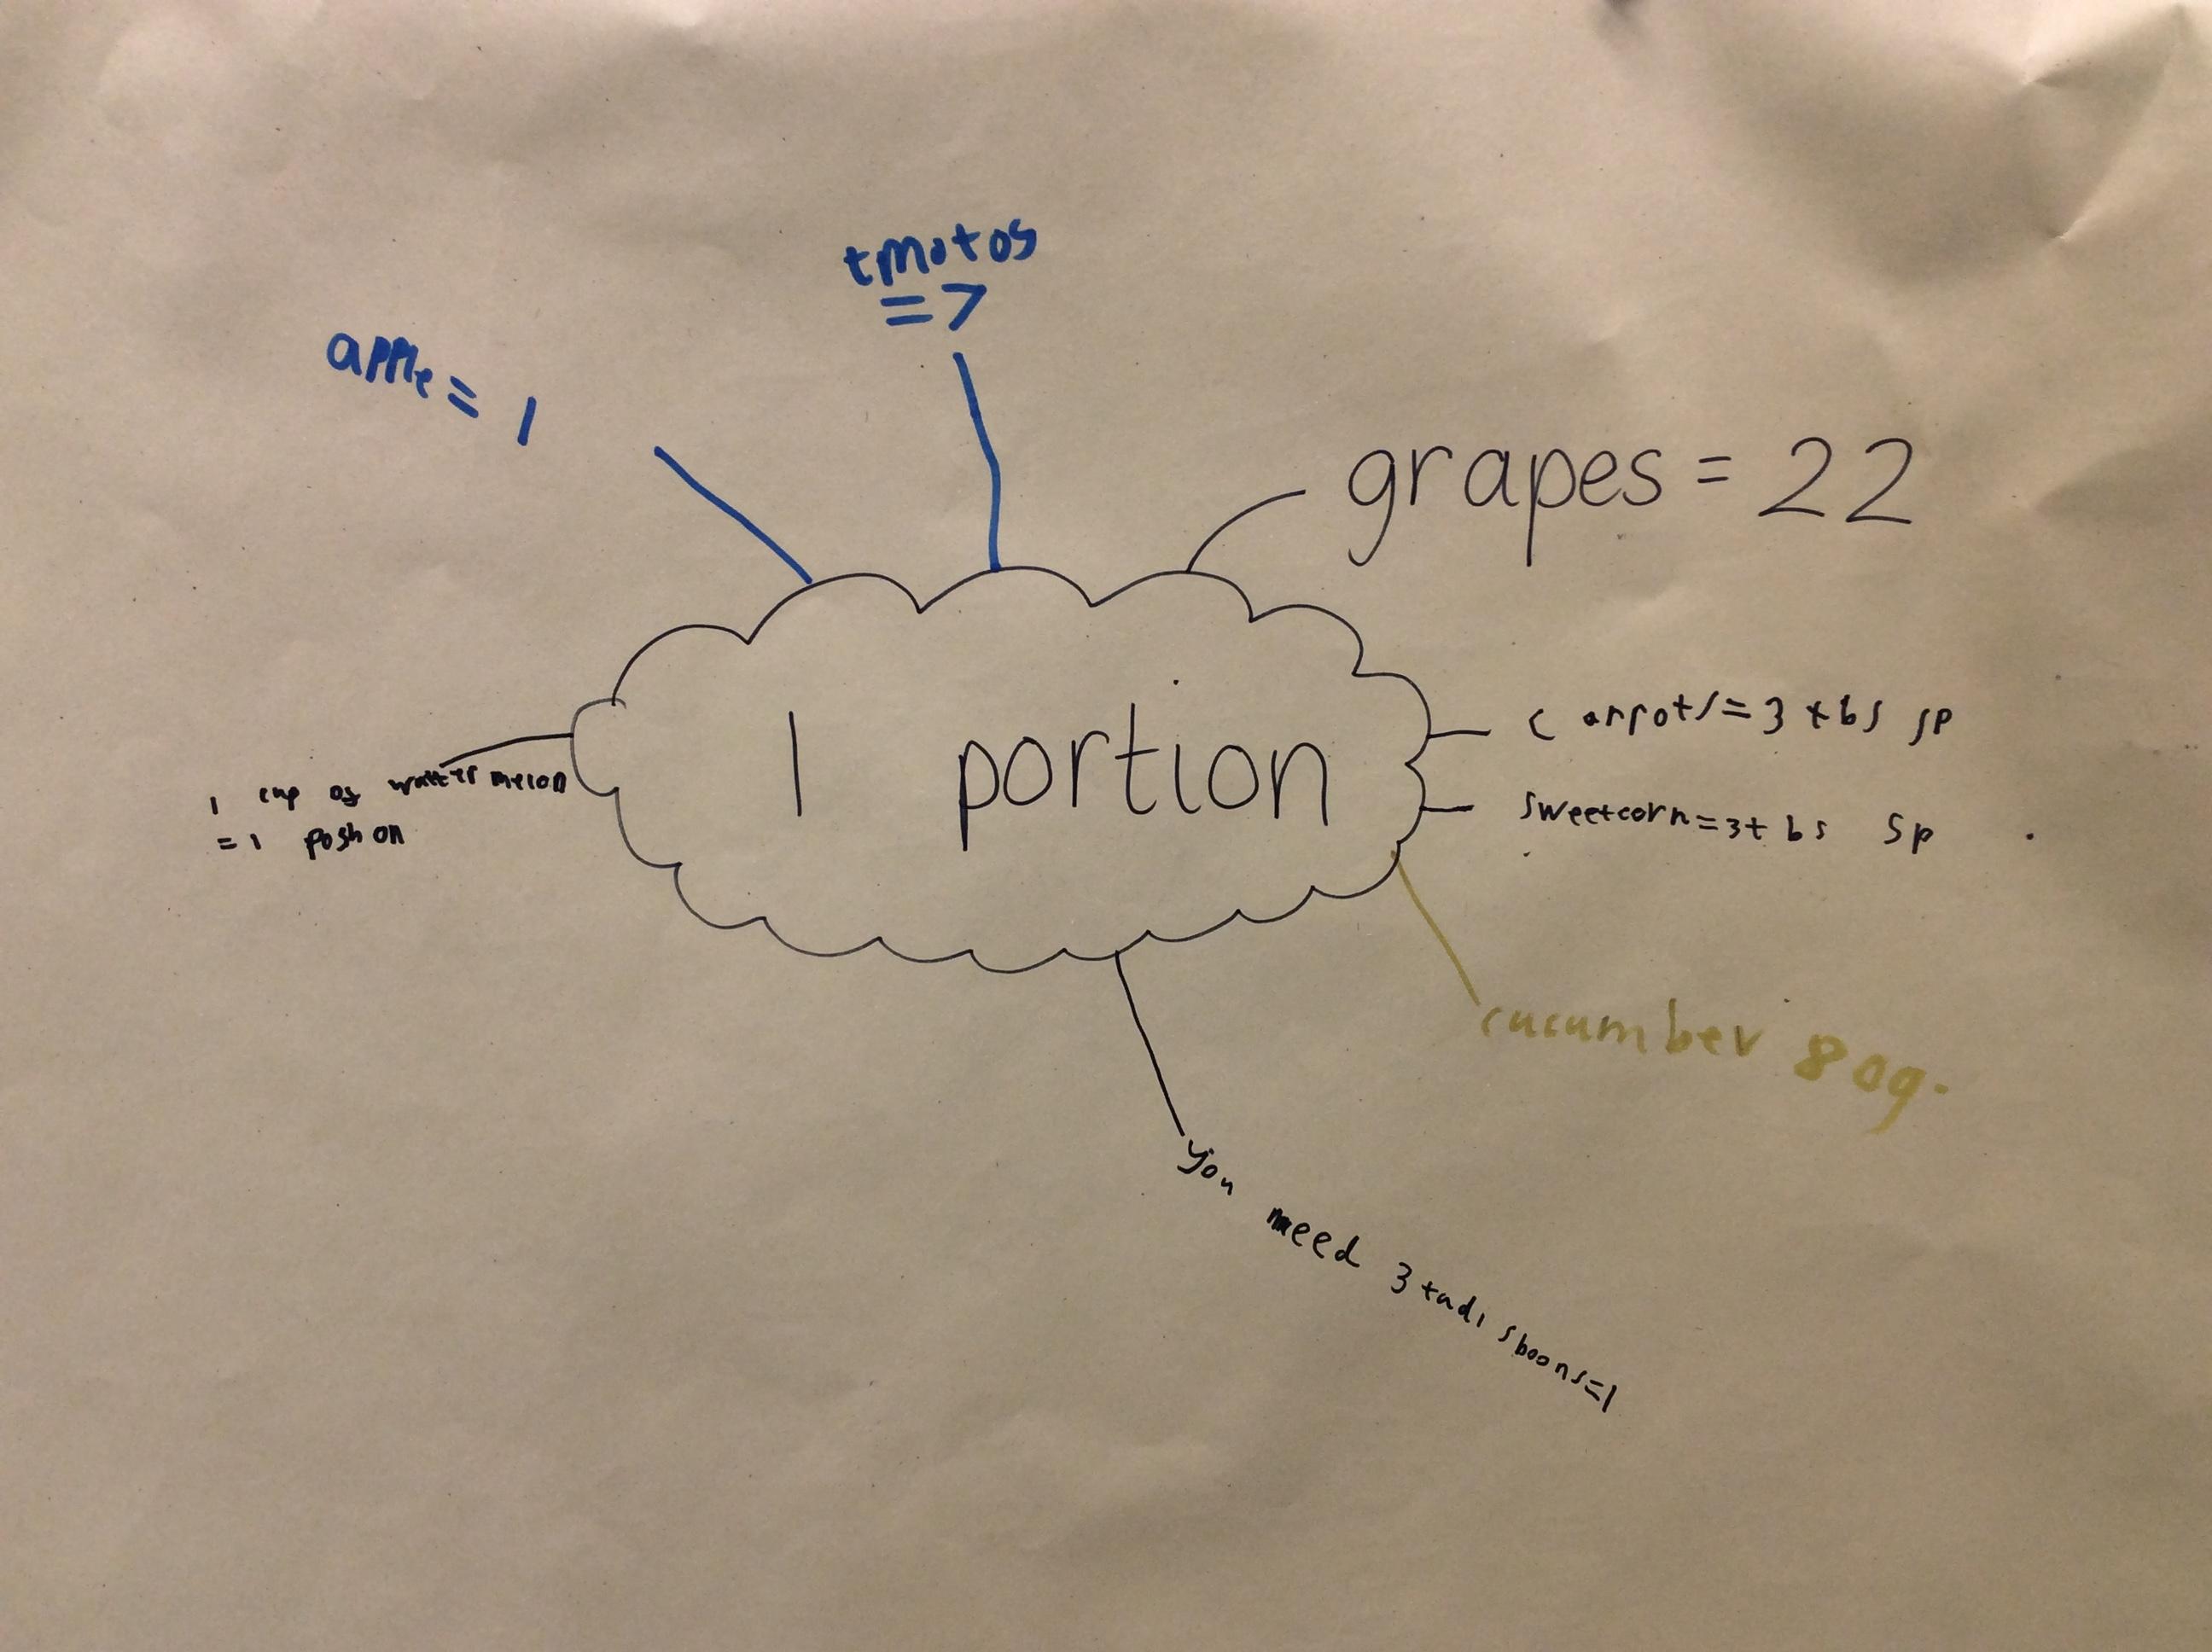 tmotos
=7
apple = 1
grapes = 22
1 portion
carrots = 3 tbs sp
sweetcorn = 3tbs sp
1 cup of watter melon
= 1 poshon
cucumber 80g.
you need 3 sboons=1